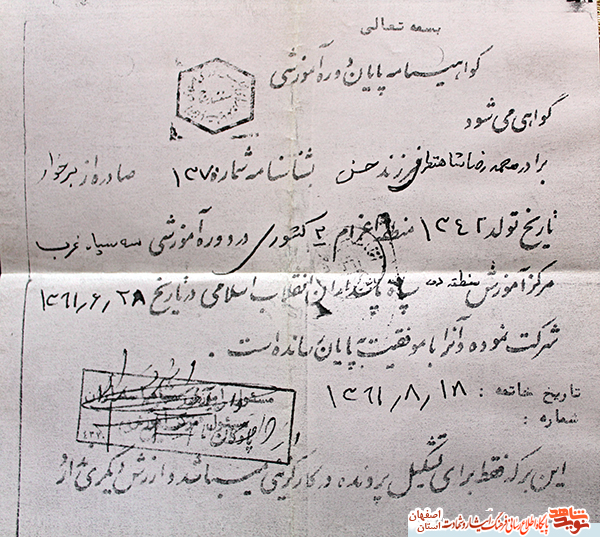 بسمه تعالی
گواهینامه پایان دوره آموزشی
گواهی می شود
برادر محمد رضا شاهنظری فرزند حسن بشناسنامه شماره ۱۳۷ صادره از برخوار
تاریخ تولد ۱۳۴۲ منطقه اعزام ۲ کشوری در دوره آموزشی سه سپاه غرب
مرکز آموزش منطقه ده سپاه پاسداران انقلاب اسلامی در تاریخ ۱۳۶۱٫۶٫۲۸
شرکت نموده و آنرا با موفقیت به پایان رسانده است .
تاریخ خاتمه : ۱۳۶۱٫۸٫۱۸
شماره :
مسئول
این برگ فقط برای تشکیل پرونده در کارگزینی میباشد و ارزش دیگری ندارد
نوید شاهد
پایگاه اطلاع رسانی فرهنگ ایثار و شهادت
استان اصفهان